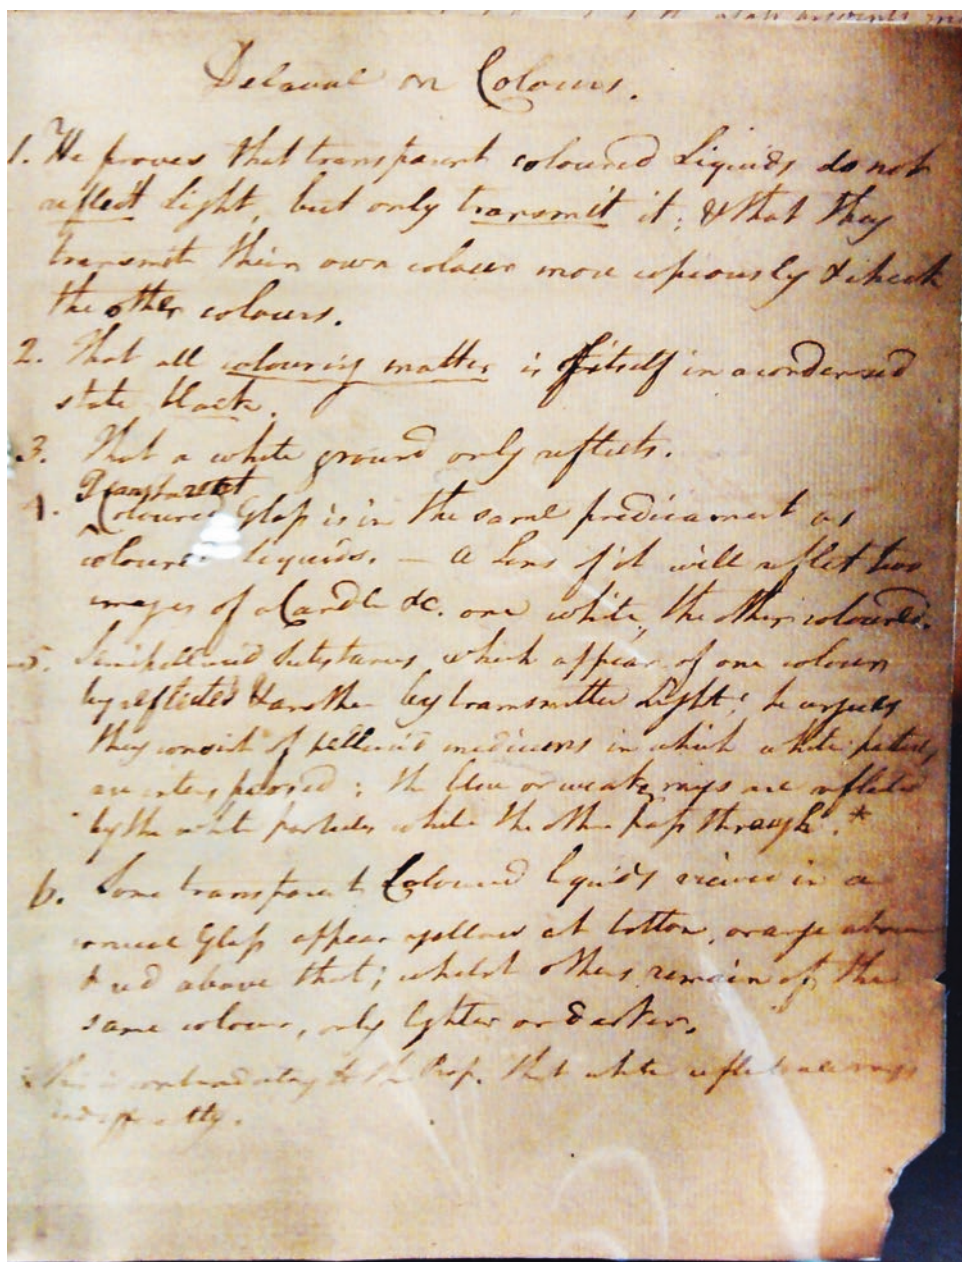 Delaval on Colours.
1. He proves that transparent coloured Liquids do not
reflect Light, but only transmit it; & that they
transmit their own colour more copiously & check
the other colours.
2. That all colouring matter is of itself in a condensed
state black.
3. That a white ground only reflects.
Transparent
4. Coloured Glass is in the same predicament as
coloured liquids. — A Lens of it will reflect two
images of a Candle &c. one white, the other coloured.
5. Semipellucid Substances, which appear of one colour
by reflected & another by transmitted Light; he argues
they consist of pellucid mediums in which white particles
are interspersed; the blue or weaker rays are reflected
by the white particles while the other pass through. *
6. Some transparent Coloured liquids viewed in a
conical Glass appear yellow at bottom, orange above
& red above that; whilst others remain of the
same colour, only lighter or darker.
This is contradictory to the Prop. that white reflects all rays